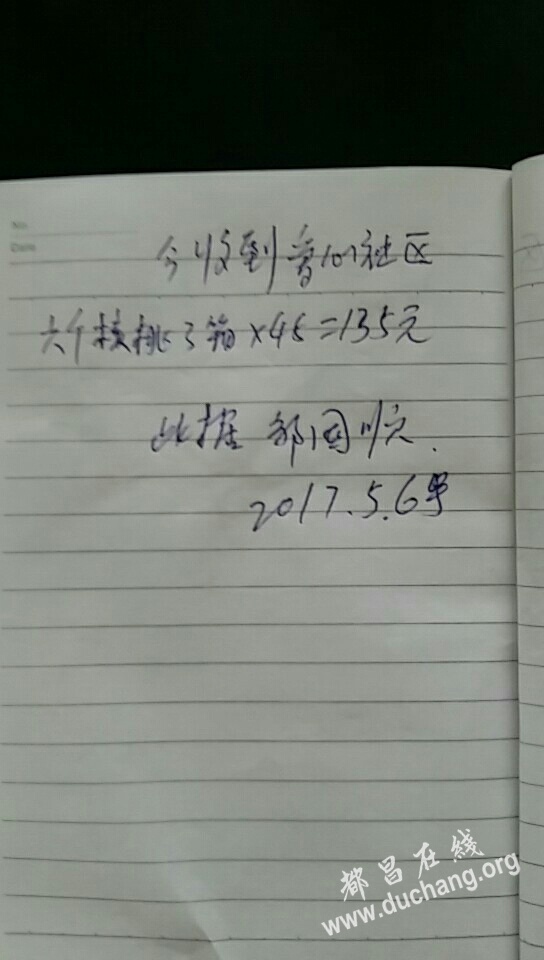 No.
Date
今收到 社区
六个核桃3箱×45=135元
此据 邹国顺.
2017.5.6号
都昌在線
www.duchang.org